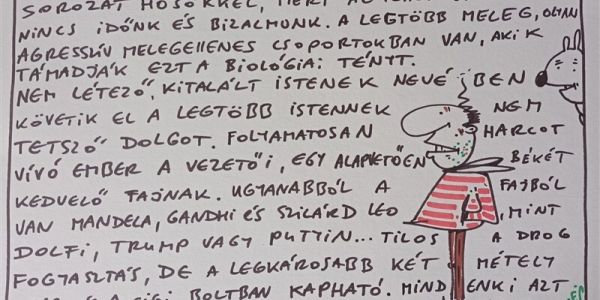 SOROZAT HŐSÖKKEL, MERT
NINCS IDŐNK ÉS BIZALMUNK. A LEGTÖBB MELEG, OLYAN
AGRESSZÍV MELEGELLENES CSOPORTOKBAN VAN, AKIK
TÁMADJÁK EZT A BIOLÓGIAI TÉNYT.
NEM LÉTEZŐ, KITALÁLT ISTENEK NEVÉBEN
KÖVETIK EL A LEGTÖBB ISTENNEK NEM
TETSZŐ DOLGOT. FOLYAMATOSAN HARCOT
VÍVÓ EMBER A VEZETŐI, EGY ALAPVETŐEN BÉKÉT
KEDVELŐ FAJNAK. UGYANABBÓL A FAJBÓL
VAN MANDELA, GANDHI ÉS SZILÁRD LEO, MINT
DOLFI, TRUMP VAGY PUTYIN... TILOS A DROG
FOGYASZTÁS, DE A LEGKÁROSABB KÉT MÉTELY
BOLTBAN KAPHATÓ. MINDENKI AZT